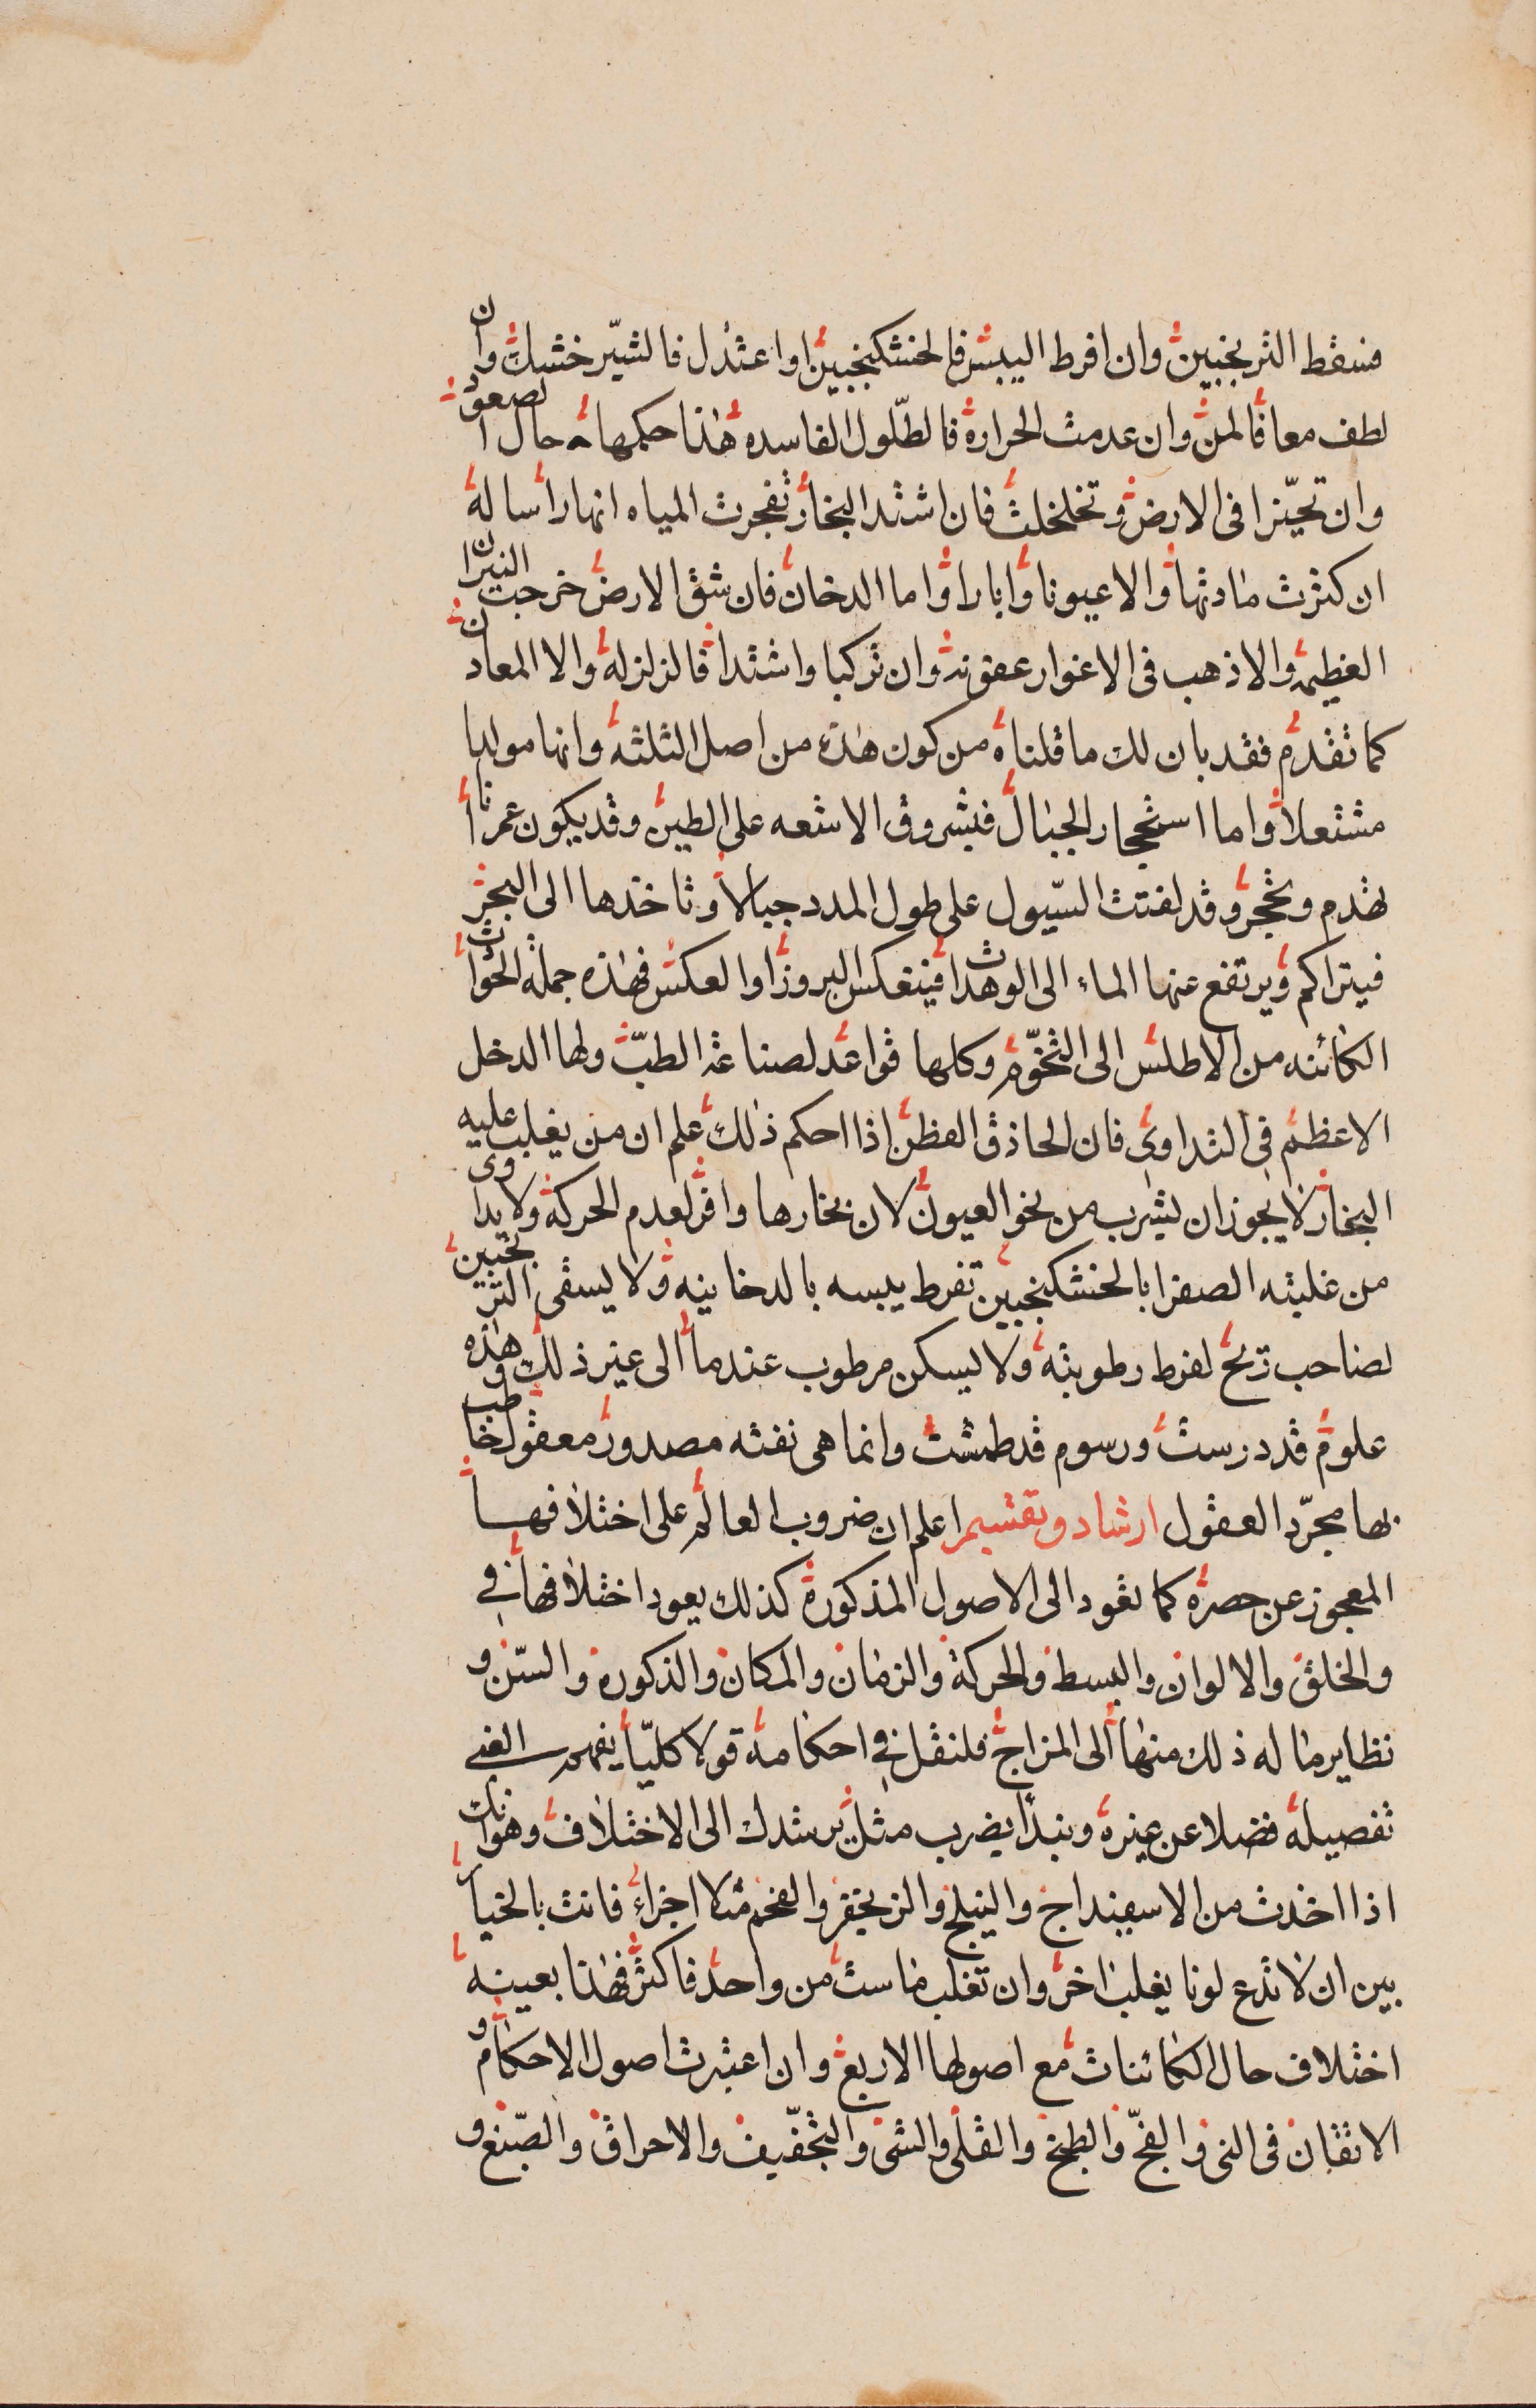 فسقط الترنجبين وان افرط اليبس فالخشكنجبين او اعتدل فالشير خشك وان
لطف معا فالمن وان عدمت الحرارة فالطلول الفاسده هذا حكمها حال الصعود
وان تحيزا فى الارض وتخلخلت فان اشتد البخار تفجرت المياه انهارا سالة
ان كثرت مادتها والا عيونا وابارا واما الدخان فان شق الارض خرجت النيران
العظيمة والا ذهب فى الاغوار عفونة وان تركبا واشتدا فالزلزلة والا المعادن
كما تقدم فقد بان لك ما قلناه من كون هذه من اصل الثلثة وانها مواليا
مشتعلا واما استحجار الجبال فبشروق الاشعه على الطين وقد يكون عمرانا
تهدم وتحجر وقد لفتت السيول على طول المدد جبالا وتاخذها الى البحر
فيتراكم ويرتفع عنها الماء الى الوهدات فينعكس البروز او العكس فهذه جملة الحوادث
الكائنه من الاطلس الى التخوم وكلها قواعد لصناعة الطب ولها الدخل
الاعظم فى التداوى فان الحاذق الفطن اذا احكم ذلك علم ان من يغلب عليه
البخار لا يجوز ان يشرب من نحو العيون لان بخارها وافر لعدم الحركة ولا يداوى
من غلبته الصفرا بالخشكنجبين تفرط يبسه بالدخانيه ولا يسقى الترنجبين
لصاحب ريح لفرط رطوبته ولا يسكن مرطوب عندما الى غير ذلك وهذه
علوم قد درست ورسوم قد طمست وانما هى نفثه مصدور معقول خاطب
بها مجرد العقول ارشاد وتقسيم اعلم ان ضروب العالم على اختلافها
المعجوز عن حصره كما تعود الى الاصول المذكورة كذلك يعود اختلافها فى
والخلق والالوان والبسط والحركة والزمان والمكان والذكورة والسن و
نظاير ماله ذلك منها الى المزاج فلنقل فى احكامه قولا كليا يفهم الغبى
تفصيله فضلا عن غيره ونبدا بضرب مثل يرشدك الى الاختلاف وهو انك
اذا اخذت من الاسفيداج والنيلج والزنجفر والفحم مثلا اجزاء فانت بالخيار
بين ان لا تدع لونا يغلب اخر وان تغلب ما شئت من واحد فاكثر فهذا بعينه
اختلاف حال الكائنات مع اصولها الاربع وان اعتبرت اصول الاحكام و
الاتقان فى النى والفج والطبخ والقلى والشى والتجفيف والاحراق والصبغ و